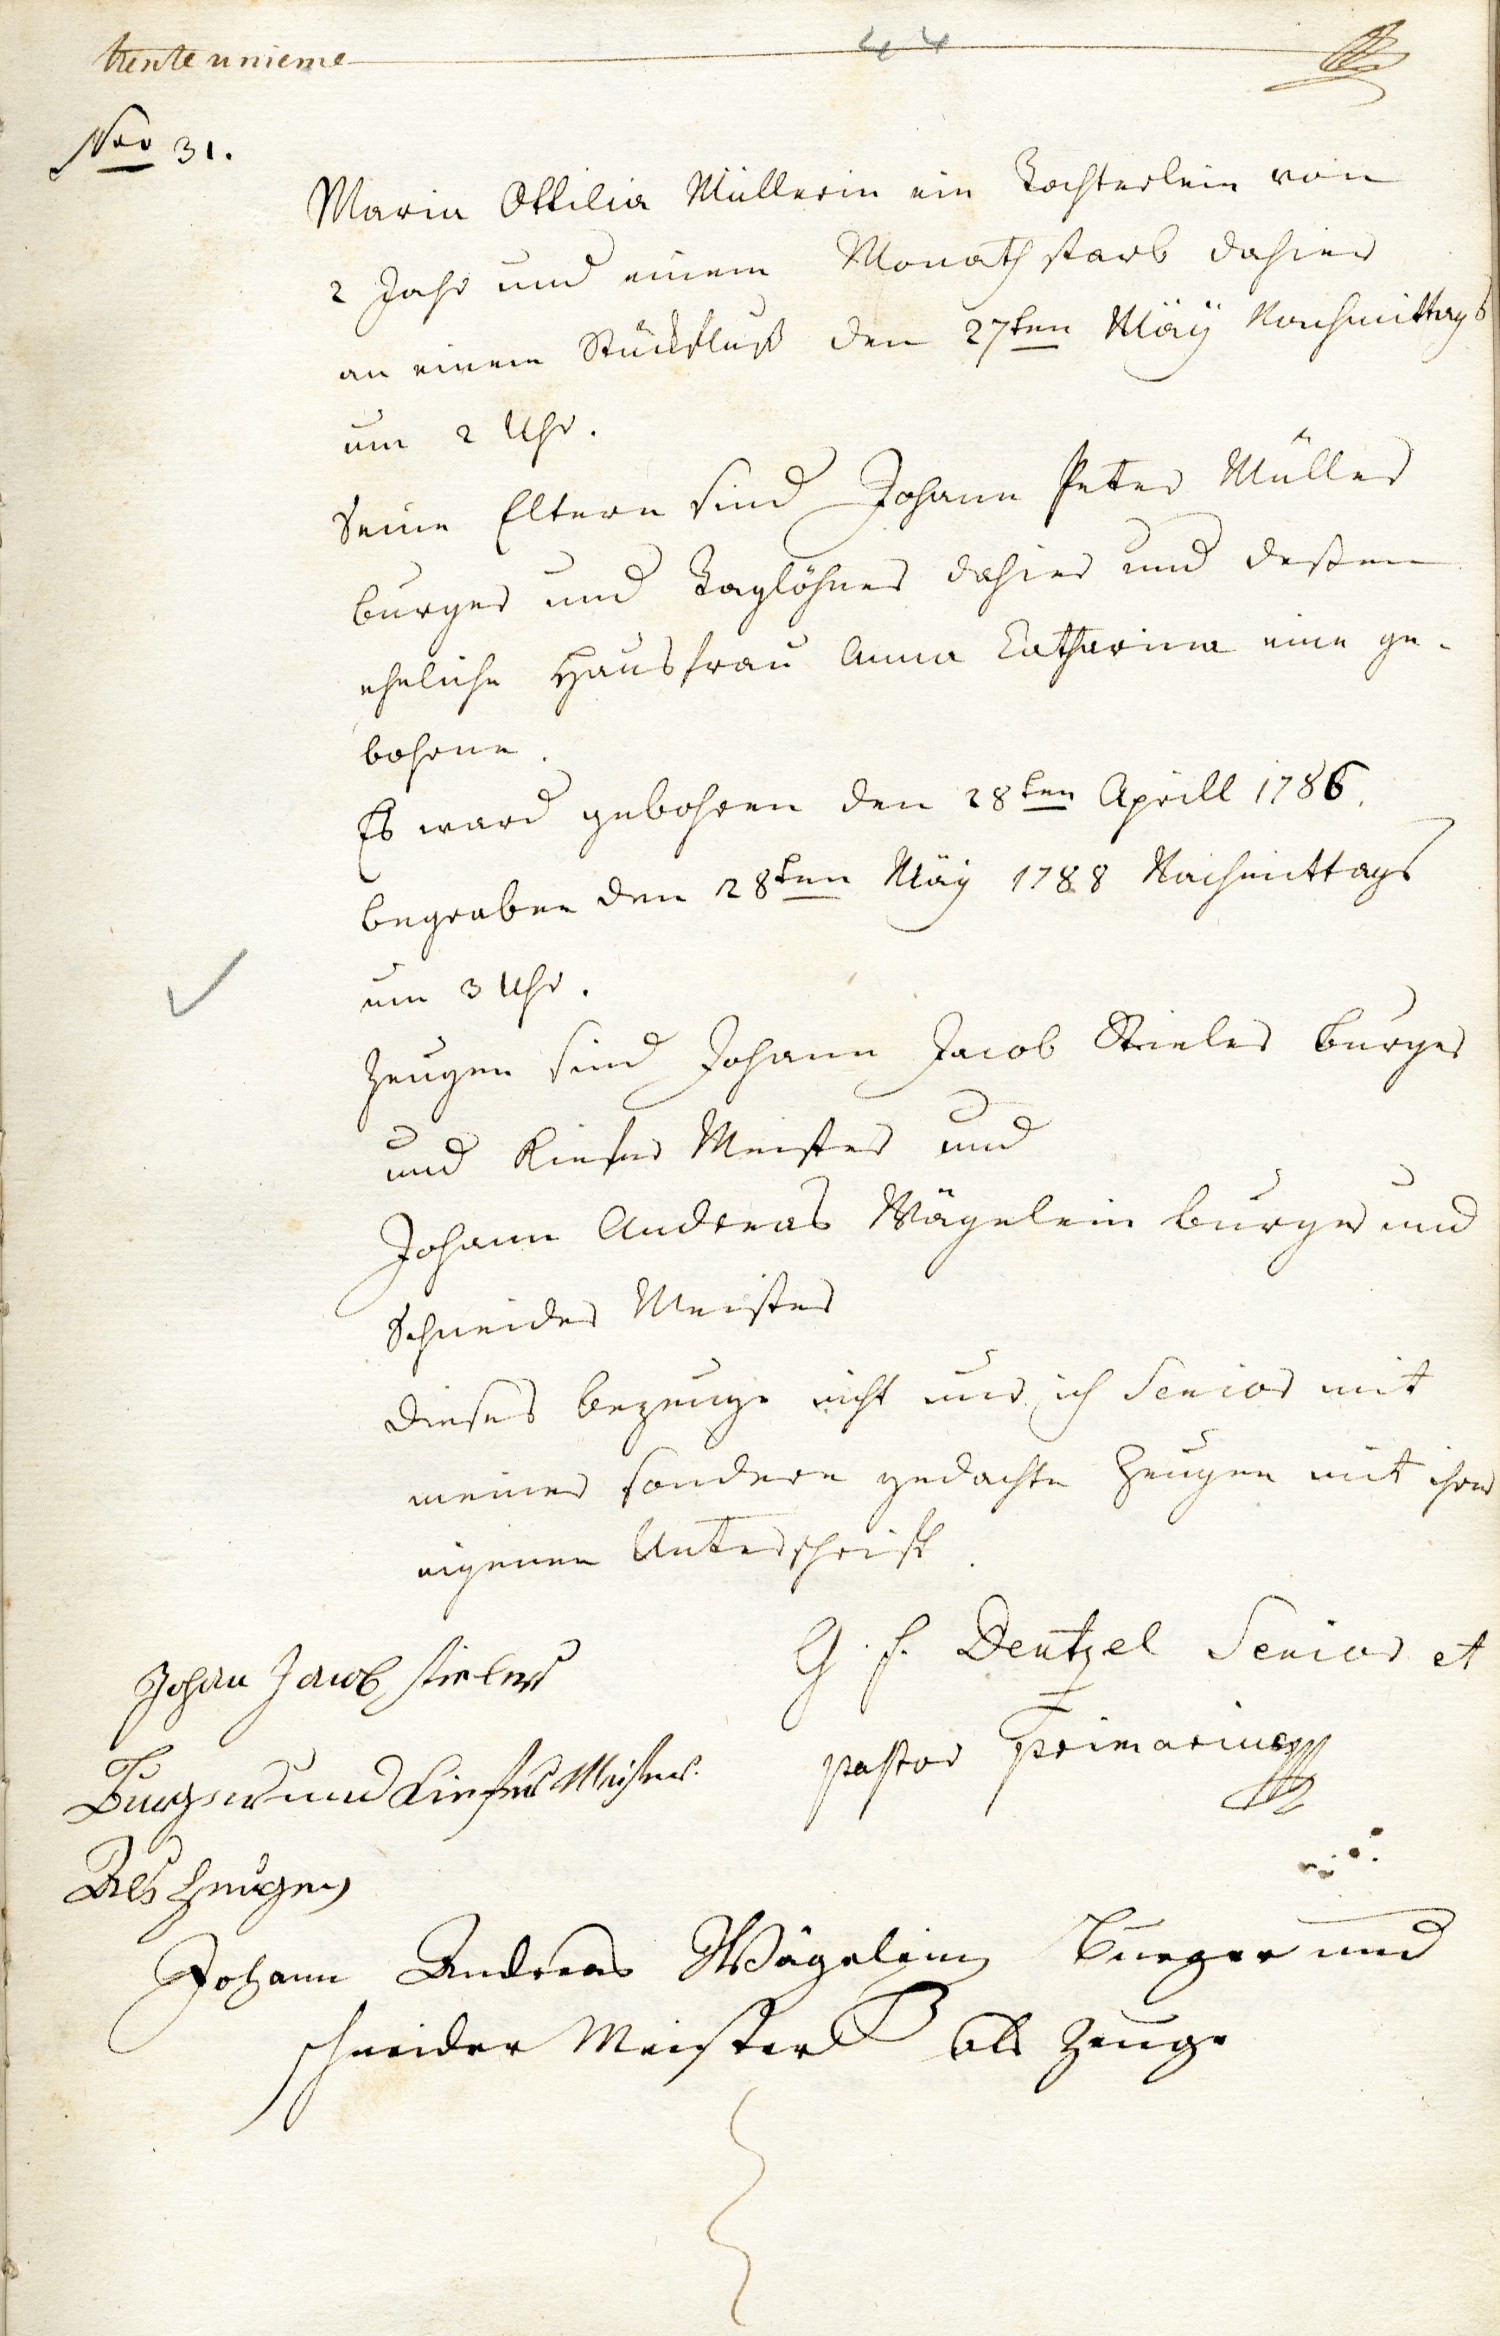 trente unieme
44
Nro 31.
Maria Ottilia Müllerin ein Tochterlein von
2 Jahr und einem Monath starb dahier
an einem Stückfluß den 27ten Mäÿ Nachmittags
um 2 Uhr.
Seine Eltern sind Johann Peter Müller
burger und Taglöhner dahier und deßen
eheliche Hausfrau Anna Catharina eine ge-
bohrne .
Es ward gebohren den 28ten Aprill 1786.
begraben den 28ten Mäÿ 1788 Nachmittags
um 3 Uhr.
Zeugen sind Johann Jacob Stieler burger
und Kiefer Meister und
Johann Andreas Wägelein burger und
Schneider Meister
dieses bezeuge nicht nur ich Senior mit
meiner sondern gedachte Zeugen mit ihrer
eigenen Unterschrift.
G. F. Dentzel Senior et
pastor primarius
Johan Jacob stieler
Burger und Kiefer Meister.
Als Zeugen
Johann Andreas Wägelein Burger und
schneider Meister als Zeuge